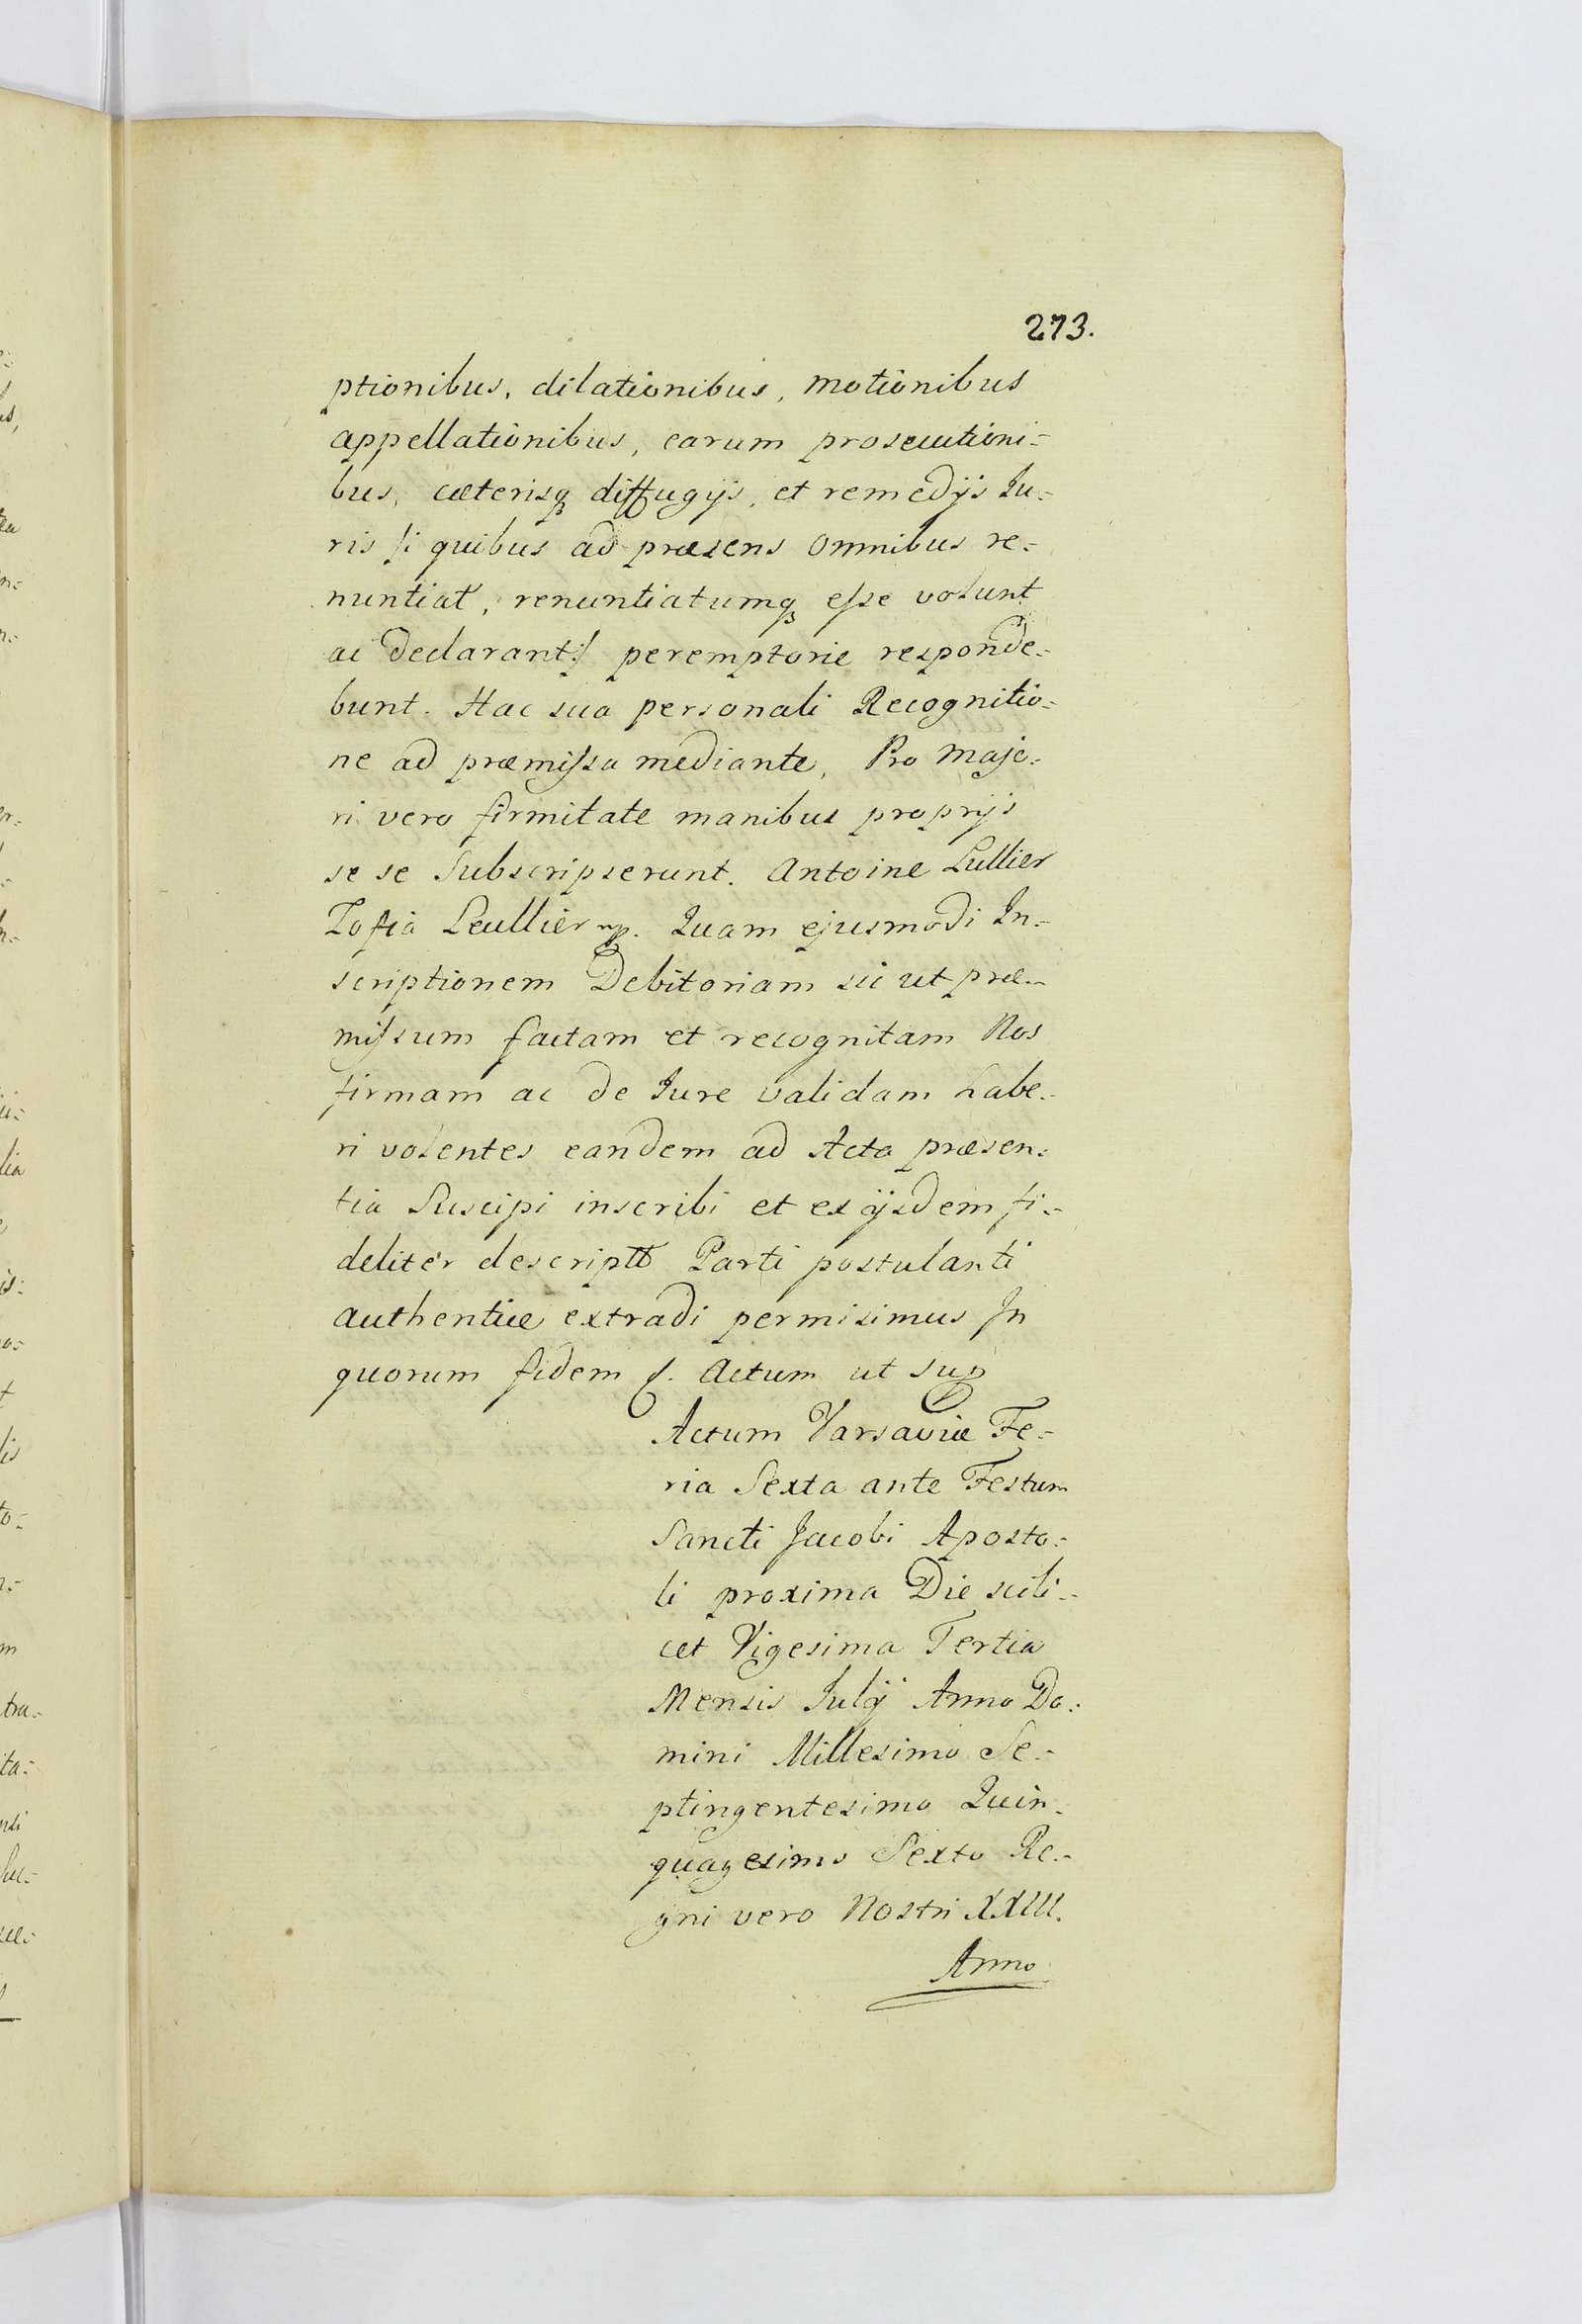 273.
ptionibus, dilationibus, motionibus
appellationibus, earum prosecutioni=
bus, cæterisq₃ diffugijs, et remedijs Iu=
ris si quibus ad præsens omnibus re=
nuntiat, renuntiatumq₃ esse volunt
ac declarant:/ peremptorie responde=
bunt. Hac sua personali Recognitio=
ne ad præmissa mediante, Pro majo=
ri vero firmitate manibus proprijs
se se Subscripserunt. Antoine Lullier
Zofia Leullier mp. Quam ejusmodi In=
scriptionem Debitoriam sic ut præ=
missum factam et recognitam Nos
firmam ac de Iure validam habe=
ri volentes eandem ad Acta præsen=
tia Suscipi inscribi et ex ijsdem fi=
deliter descriptt Parti postulanti
authentice extradi permisimus In
quorum fidem f. Actum ut sup
Actum Varsaviæ Fe=
ria Sexta ante Festum
Sancti Jacobi Aposto=
li proxima Die scili=
cet Vigesima Tertia
Mensis Julij Anno Do=
mini Millesimo Se=
ptingentesimo Quin=
quagesimo Sexto Re=
gni vero Nostri XXIII.
Anno